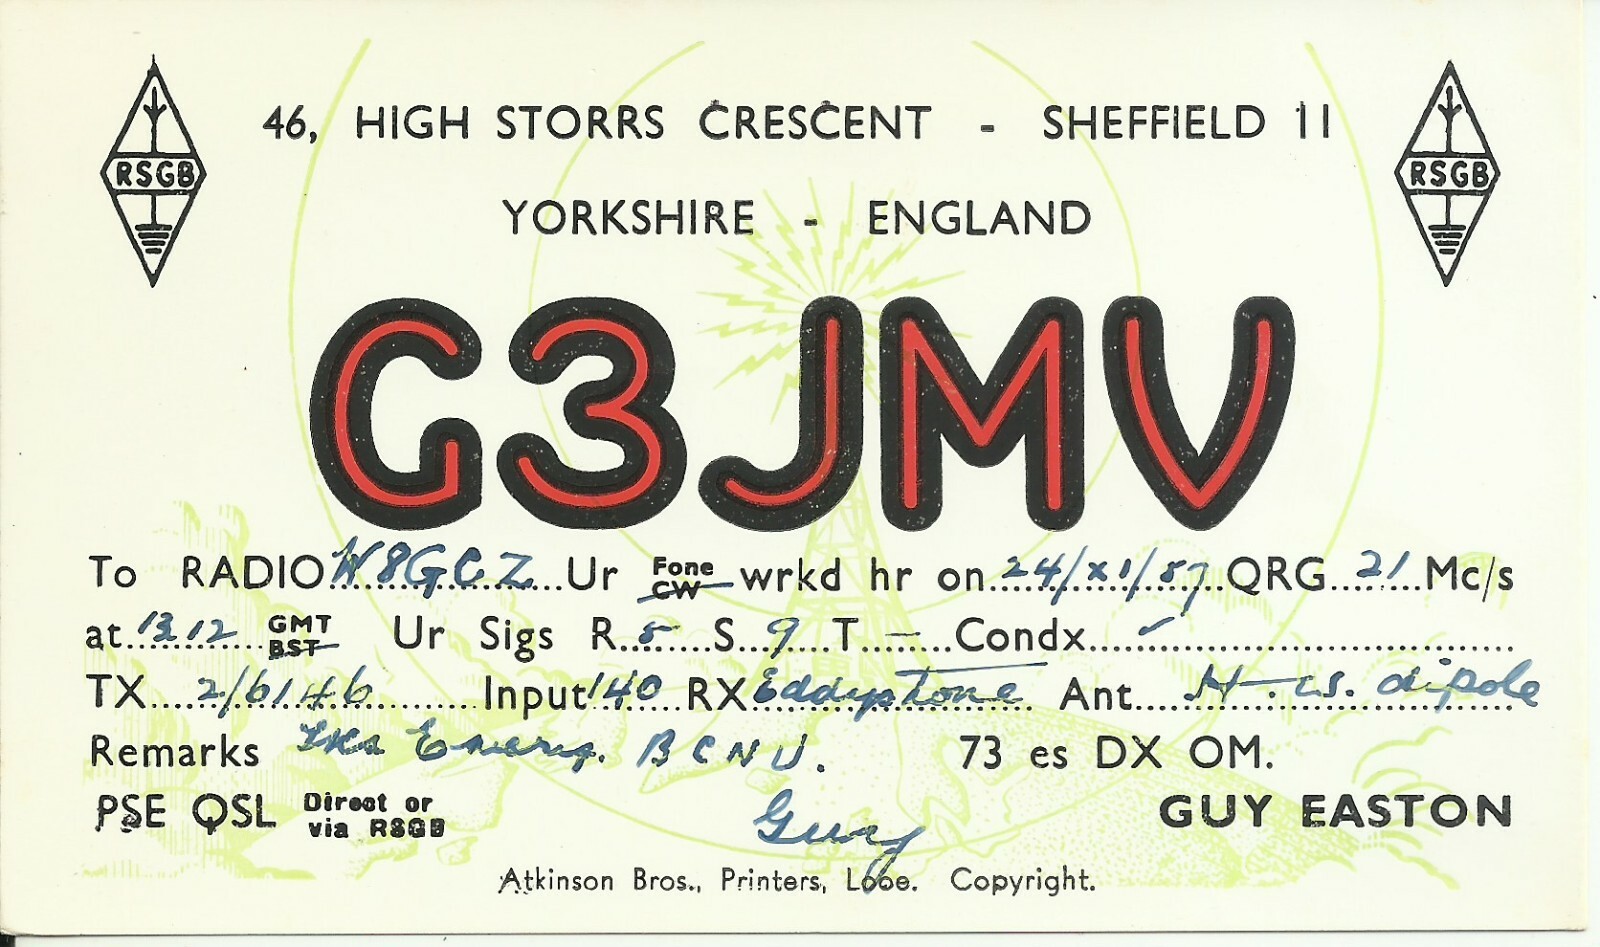 RSGB 46, HIGH STORRS CRESCENT - SHEFFIELD 11 RSGB
YORKSHIRE - ENGLAND
G3JMV
To RADIO W8GCZ Ur Fone CW wrkd hr on 24/XI/57 QRG 21 Mc/s
at 1312 GMT BST Ur Sigs R 5 S 9 T — Condx ✓
TX 2/6146 Input 140 RX Eddystone Ant dipole
Remarks BCNU. 73 es DX OM.
PSE QSL Direct or via RSGB Guy GUY EASTON
Atkinson Bros., Printers, Looe. Copyright.